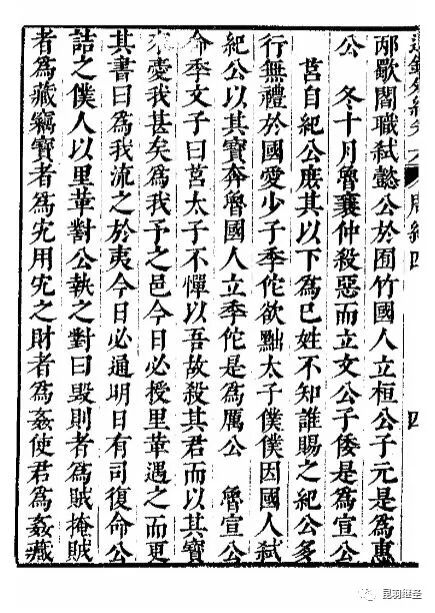 周紀四 四
邴歜閻職弒懿公於囿竹國人立桓公子元是為惠
公 冬十月魯襄仲殺惡而立文公子倭是為宣公
莒自紀公庶其以下為已姓不知誰賜之紀公多
行無禮於國愛少子季佗欲黜太子僕僕因國人弒
紀公以其寶奔魯國人立季佗是為厲公 魯宣公
命季文子曰莒太子不憚以吾故殺其君而以其寶
來愛我甚矣為我予之邑今日必授里革遇之而更
其書曰為我流之於夷今日必通明日有司復命公
詰之僕人以里革對公執之對曰毀則者為賊掩賊
者為藏竊寶者為宄用宄之財者為姦使君為姦藏
昆羽继圣